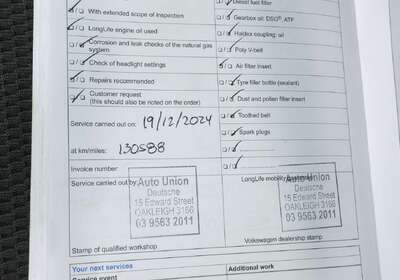 Diesel fuel filter
With extended scope of inspection
Gearbox oil: DSG®, ATF
LongLife engine oil used
Haldex coupling: oil
Corrosion and leak checks of the natural gas
system
Poly V-belt
Check of headlight settings
Air filter insert
Repairs recommended
Tyre filler bottle (sealant)
Customer request
(this should also be noted on the order)
Dust and pollen filter insert
Toothed belt
Service carried out on: 19/12/2024
Spark plugs
at km/miles: 130588
Invoice number:
Service carried out by:
LongLife mobility
Auto Union
Deutsche
15 Edward Street
OAKLEIGH 3166
03 9563 2011
Auto Union
Deutsche
15 Edward Street
OAKLEIGH 3166
03 9563 2011
Stamp of qualified workshop
Volkswagen dealership stamp
Your next services
Additional work
Service event